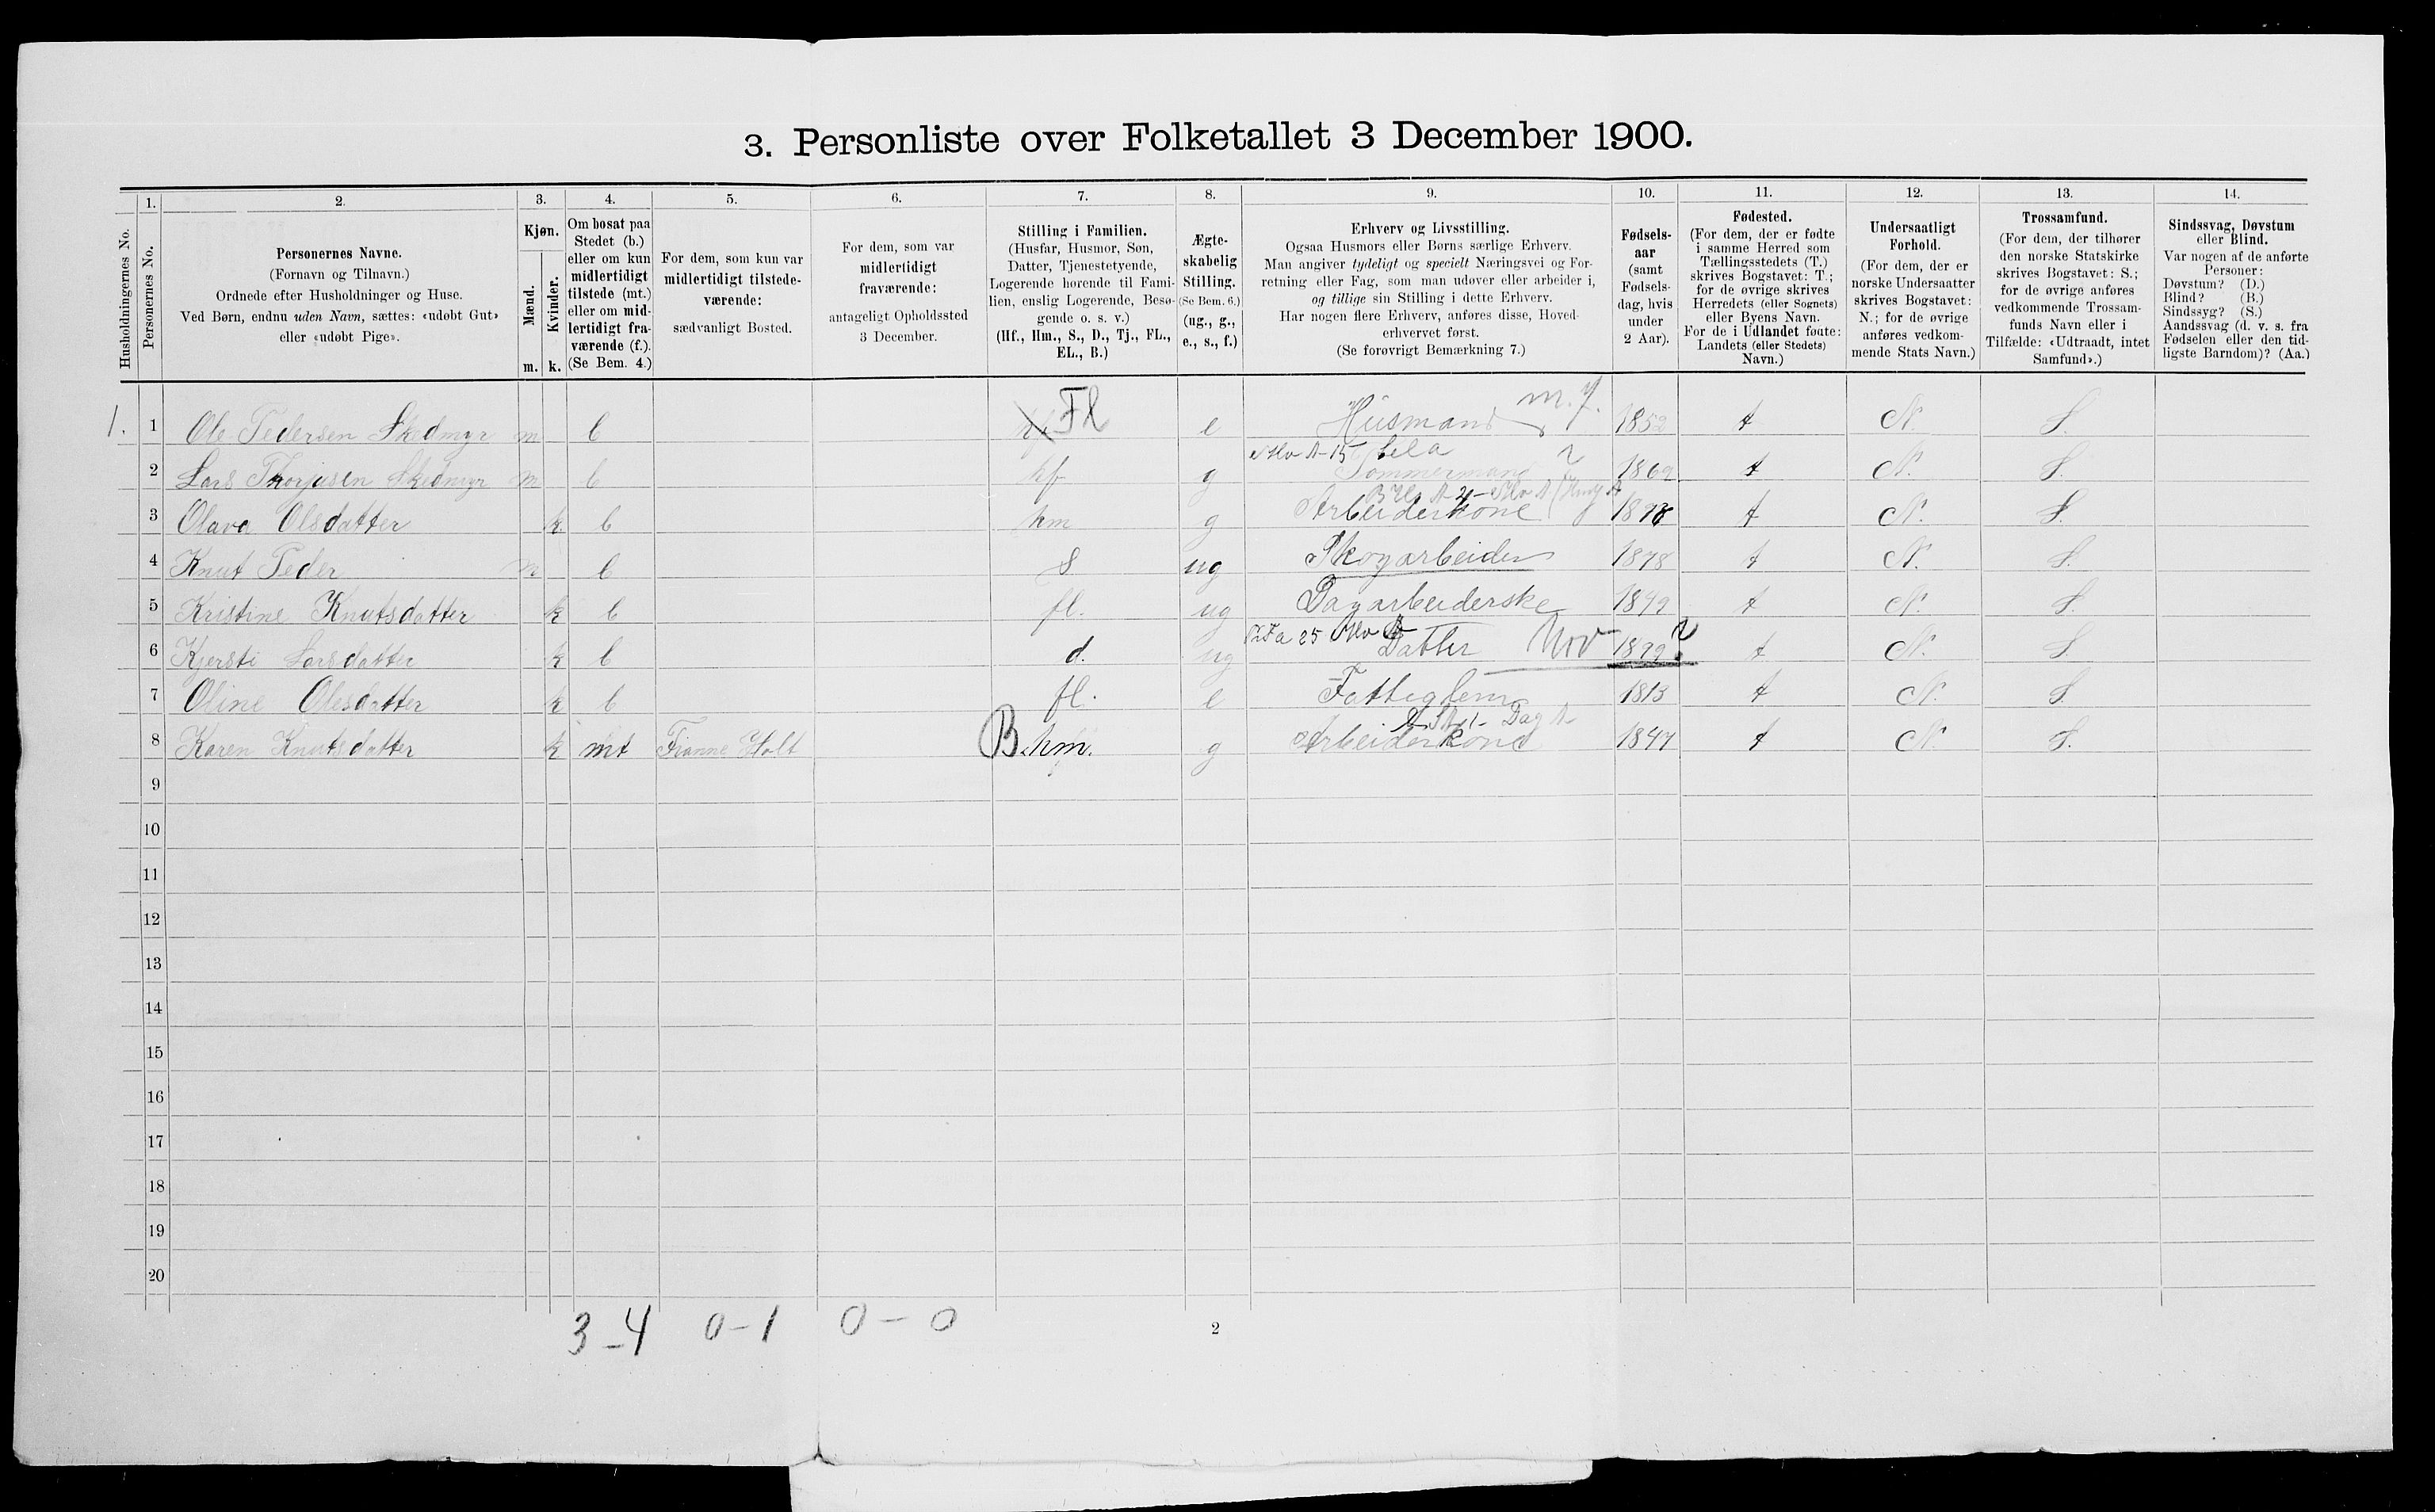 3. Personliste over Folketallet 3 December 1900.
Husholdningernes No.
1.
Personernes No.
2.
Personernes Navne.
(Fornavn og Tilnavn.)
Ordnede efter Husholdninger og Huse.
Ved Børn, endnu uden Navn, sættes: «udøbt Gut»
eller «udøbt Pige».
3.
Kjøn.
Mænd.
Kvinder.
m. k.
4.
Om bosat paa
Stedet (b.)
eller om kun
midlertidigt
tilstede (mt.)
eller om mid-
lertidigt fra-
værende (f.).
(Se Bem. 4.)
5.
For dem, som kun var
midlertidigt tilstede-
værende:
sædvanligt Bosted.
6.
For dem, som var
midlertidigt
fraværende:
antageligt Opholdssted
3 December.
7.
Stilling i Familien.
(Husfar, Husmor, Søn,
Datter, Tjenestetyende,
Logerende hørende til Fami-
lien, enslig Logerende, Besø-
gende o. s. v.)
(Hf., Hm., S., D., Tj., FL.,
EL., B.)
8.
Ægte-
skabelig
Stilling.
(Se Bem. 6.)
(ug., g.,
e., s., f.)
9.
Erhverv og Livsstilling.
Ogsaa Husmors eller Børns særlige Erhverv.
Man angiver tydeligt og specielt Næringsvei og For-
retning eller Fag, som man udøver eller arbeider i,
og tillige sin Stilling i dette Erhverv.
Har nogen flere Erhverv, anføres disse, Hoved-
erhvervet først.
(Se forøvrigt Bemærkning 7.)
10.
Fødsels-
aar
(samt
Fødsels-
dag, hvis
under
2 Aar).
11.
Fødested.
(For dem, der er fødte
i samme Herred som
Tællingsstedets (T.)
skrives Bogstavet: T.;
for de øvrige skrives
Herredets (eller Sognets)
eller Byens Navn.
For de i Udlandet fødte:
Landets (eller Stedets)
Navn.)
12.
Undersaatligt
Forhold.
(For dem, der er
norske Undersaatter
skrives Bogstavet:
N.; for de øvrige
anføres vedkom-
mende Stats Navn.)
13.
Trossamfund.
(For dem, der tilhører
den norske Statskirke
skrives Bogstavet: S.;
for de øvrige anføres
vedkommende Trossam-
funds Navn eller i
Tilfælde: «Udtraadt, intet
Samfund».)
14.
Sindssvag, Døvstum
eller Blind.
Var nogen af de anførte
Personer:
Døvstum? (D.)
Blind? (B.)
Sindssyg? (S.)
Aandssvag (d. v. s. fra
Fødselen eller den tid-
ligste Barndom)? (Aa.)
1. 1 Ole Pedersen Skedmyr m b Fl e Husmand 1852 t N. S.
2 Lars Thorjusen Skedmyr m b hf g Tømmermand 1869 t N. S.
3 Olava Olsdatter k b hm g Arbeiderkone t N. S.
4 Knut Peder m b S ug Skogarbeider 1878 t N. S.
5 Kristine Knutsdatter k b fl. ug Dagarbeiderske 1849 t N. S.
6 Kjersti Larsdatter k b d. ug Datter 1899 ? t N. S.
7 Oline Olesdatter k b fl. e Fattiglem 1813 t N. S.
8 Karen Knutsdatter k mt Fianne Holt B. hm. g Arbeiderkone 1847 t N. S.
9
10
11
12
13
14
15
16
17
18
19
20
3-4 0-1 0-0
2